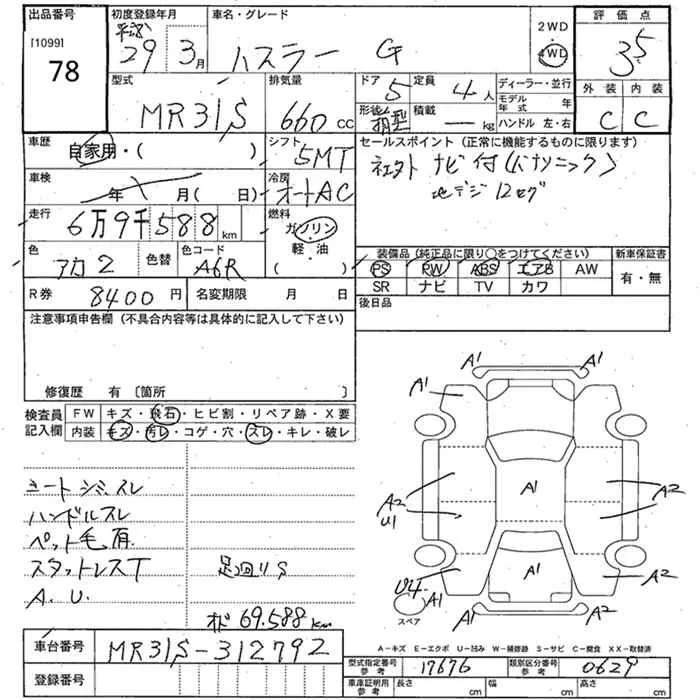 出品番号
[1099]
78
初度登録年月
平成
29 3月
車名・グレード
ハスラー G
2WD
4WD
評価点
3.5
外装 内装
C C
型式
MR31S
排気量
660 cc
ドア 5
定員 4人
ディーラー・並行
モデル年式 年
ハンドル 左・右
積載 ー kg
車歴
自家用・( )
シフト
5MT
セールスポイント (正常に機能するものに限ります)
ナビ付(パナソニック)
地デジ 12セグ
車検
年 月( 日)
冷房
オートAC
走行
6万9千588km
燃料
ガソリン
軽・油
( )
色
アカ2
色替
色コード
A6R
装備品 (純正品に限り○をつけてください)
新車保証書
PS PW ABS エアB AW
有・無
SR ナビ TV カワ
R券 8400円
名変期限 月 日
後日品
注意事項申告欄 (不具合内容等は具体的に記入して下さい)
修復歴 有 〔箇所 〕
検査員記入欄
FW キズ・飛石・ヒビ割・リペア跡・X要
内装 キズ・汚レ・コゲ・穴・スレ・キレ・破レ
シートシミ、スレ
ハンドルスレ
ペット毛有
スタットレスT
足廻りS
A.U.
69.588km
A1 A1
A1 A1
A2 A1 A2
U1
U4 A1 A1 A2
A1
スペア
A-キズ E-エクボ U-凹み W-補修跡 S-サビ C-腐食 XX-取替済
車台番号 MR31S-312792
型式指定番号 参考 17676
類別区分番号 参考 0629
登録番号
車庫証明用 参考
長さ cm 幅 cm 高さ cm